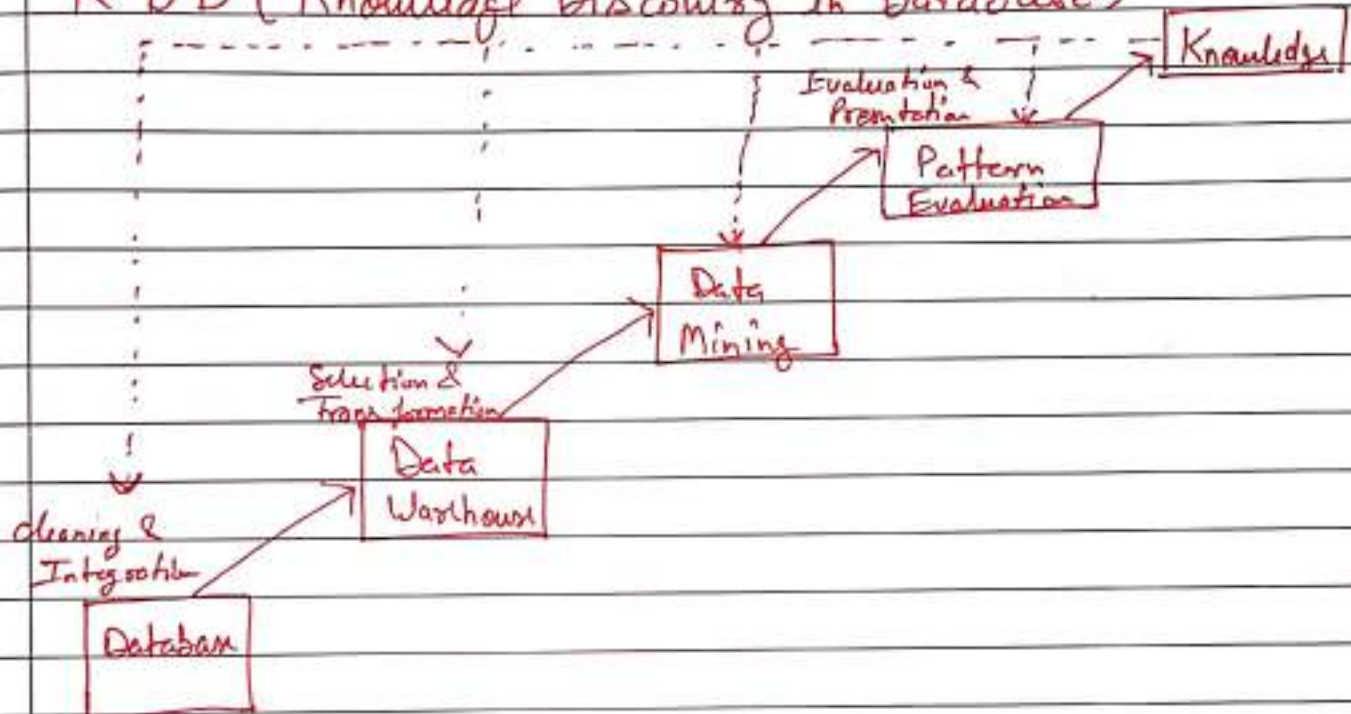 KDD (Knowledge Discovery in Database)
Knowledge
Evaluation &
Presentation
Pattern
Evaluation
Data
Mining
Selection &
Transformation
Data
Warehouse
cleaning &
Integration
Database